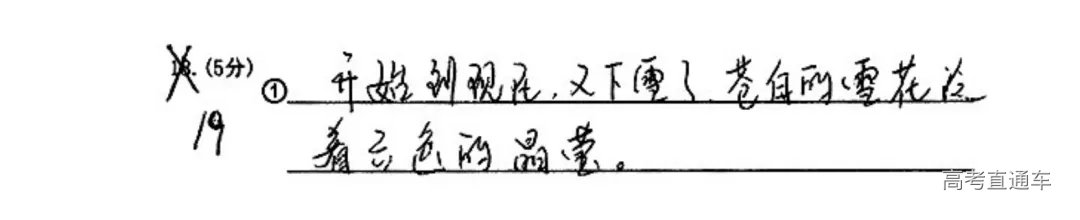 18.(5分) ① 开始到现在,又下雪了.苍白的雪花泛
19 着云色的晶莹。
高考直通车